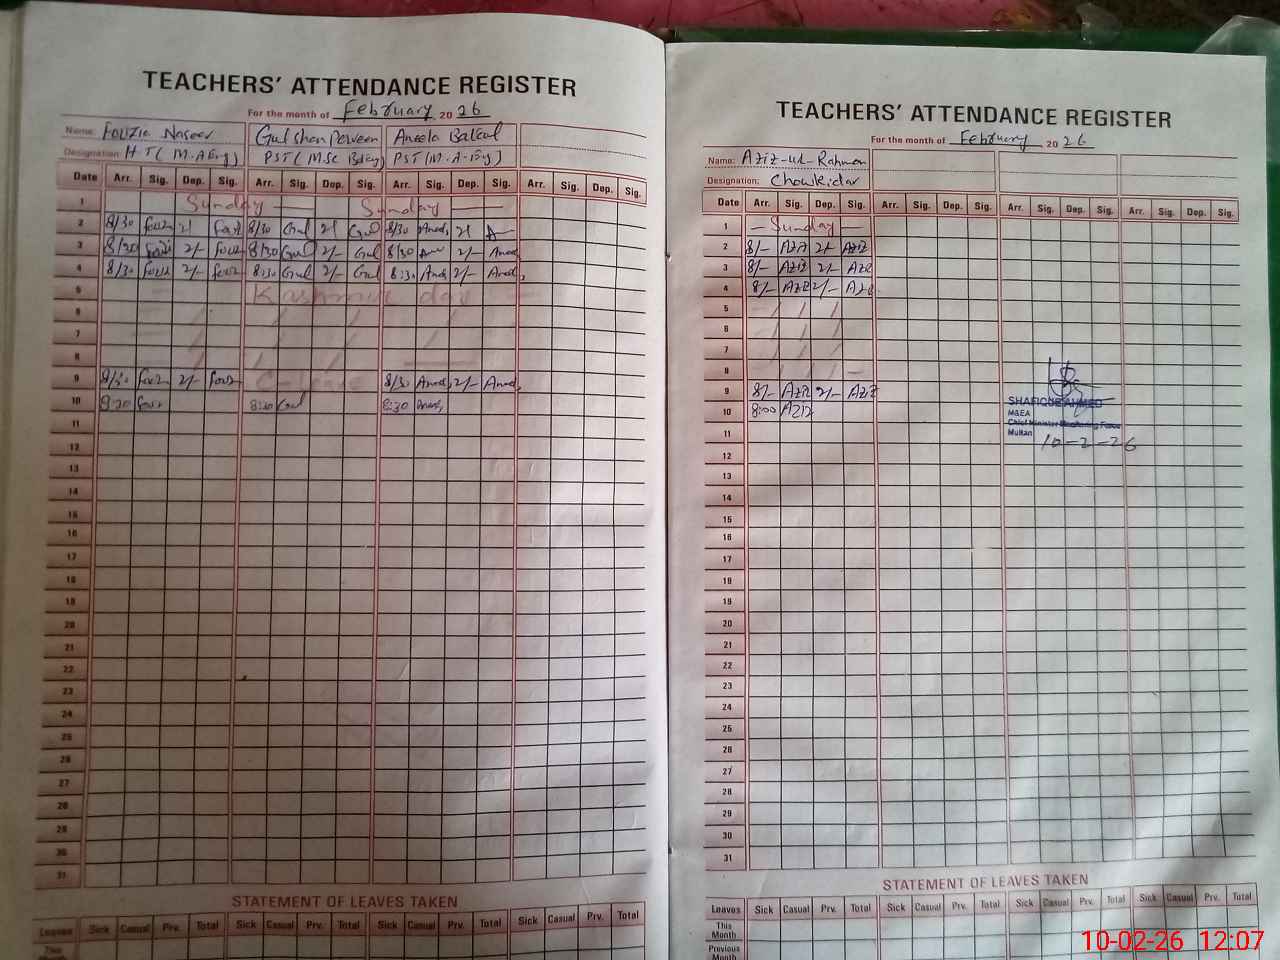 TEACHERS' ATTENDANCE REGISTER
For the month of February 2026
Name: Fouzia Naseer Gulshan Perveen Aneela Batool
Designation: H T ( M.A Eng ) PST ( M.Sc Bdeng ) PST ( M.A-Eng )
Date Arr. Sig. Dep. Sig. Arr. Sig. Dep. Sig. Arr. Sig. Dep. Sig. Arr. Sig. Dep. Sig.
1 Sunday — Sunday —
2 8/30 Fouz 2/ Fouz 8/30 Gul 2/ Gul 8/30 Aneel 2/
3 8/30 Fouz 2/- Fouz 8/30 Gul 2/- Gul 8/30 2/- Aneel
4 8/30 Fouz 2/- Fouz 8:30 Gul 2/- Gul 8:30 Aneel 2/- Aneel
5 Kashmir day
6
7
8
9 8/30 Fouz 2/- Fouz C-leave 8/30 Aneel 2/- Aneel
10 8:30 Fouz 8:30 Gul 8:30 Aneel
11
12
13
14
15
16
17
18
19
20
21
22
23
24
25
26
27
28
29
30
31
STATEMENT OF LEAVES TAKEN
Leaves Sick Casual Prv. Total Sick Casual Prv. Total Sick Casual Prv. Total Sick Casual Prv. Total
This
TEACHERS' ATTENDANCE REGISTER
For the month of February 2026
Name: Aziz-ul-Rahman
Designation: Chowkidar
Date Arr. Sig. Dep. Sig. Arr. Sig. Dep. Sig. Arr. Sig. Dep. Sig. Arr. Sig. Dep. Sig.
1 — Sunday —
2 8/- Aziz 2/- Aziz
3 8/- Aziz 2/- Aziz
4 8/- Aziz 2/- Aziz
5
6
7
8
9 8/- Aziz 2/- Aziz
10 8:00 Aziz
SHAFIQUE AHMED
M&EA
Chief Minister Monitoring Force
Multan
10-2-26
11
12
13
14
15
16
17
18
19
20
21
22
23
24
25
26
27
28
29
30
31
STATEMENT OF LEAVES TAKEN
Leaves Sick Casual Prv. Total Sick Casual Prv. Total Sick Casual Prv. Total Sick Casual Prv. Total
This Month
Previous Month
10-02-26 12:07